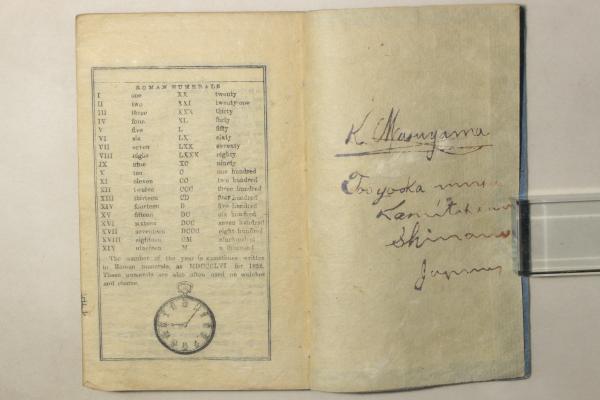 ROMAN NUMERALS
I one XX twenty
II two XXI twenty one
III three XXX thirty
IV four XL forty
V five L fifty
VI six LX sixty
VII seven LXX seventy
VIII eight LXXX eighty
IX nine XC ninety
X ten C one hundred
XI eleven CC two hundred
XII twelve CCC three hundred
XIII thirteen CD four hundred
XIV fourteen D five hundred
XV fifteen DC six hundred
XVI sixteen DCC seven hundred
XVII seventeen DCCC eight hundred
XVIII eighteen CM nine hundred
nineteen M a thousand
The number of the year is sometimes written
in Roman numerals, as MDCCCLVI for
These numerals are also often used on watches
and
K. Masuyama
Toyooka
Japan